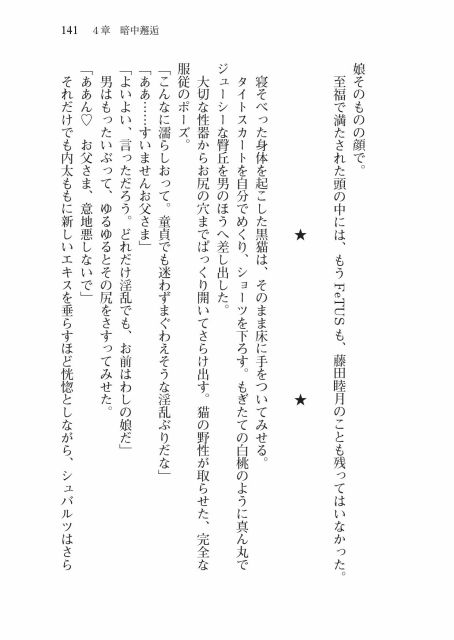 141　4章　暗中邂逅
娘そのものの顔で。
至福で満たされた頭の中には、もうFeTUSも、藤田睦月のことも残ってはいなかった。
★　★
寝そべった身体を起こした黒猫は、そのまま床に手をついてみせる。
タイトスカートを自分でめくり、ショーツを下ろす。もぎたての白桃のように真ん丸で
ジューシーな臀丘を男のほうへ差し出した。
大切な性器からお尻の穴までぱっくり開いてさらけ出す。猫の野性が取らせた、完全な
服従のポーズ。
「こんなに濡らしおって。童貞でも迷わずまぐわえそうな淫乱ぶりだな」
「ああ……すいませんお父さま」
「よいよい、言っただろう。どれだけ淫乱でも、お前はわしの娘だ」
男はもったいぶって、ゆるゆるとその尻をさすってみせた。
「ああん♡　お父さま、意地悪しないで」
それだけでも内太ももに新しいエキスを垂らすほど恍惚としながら、シュバルツはさら